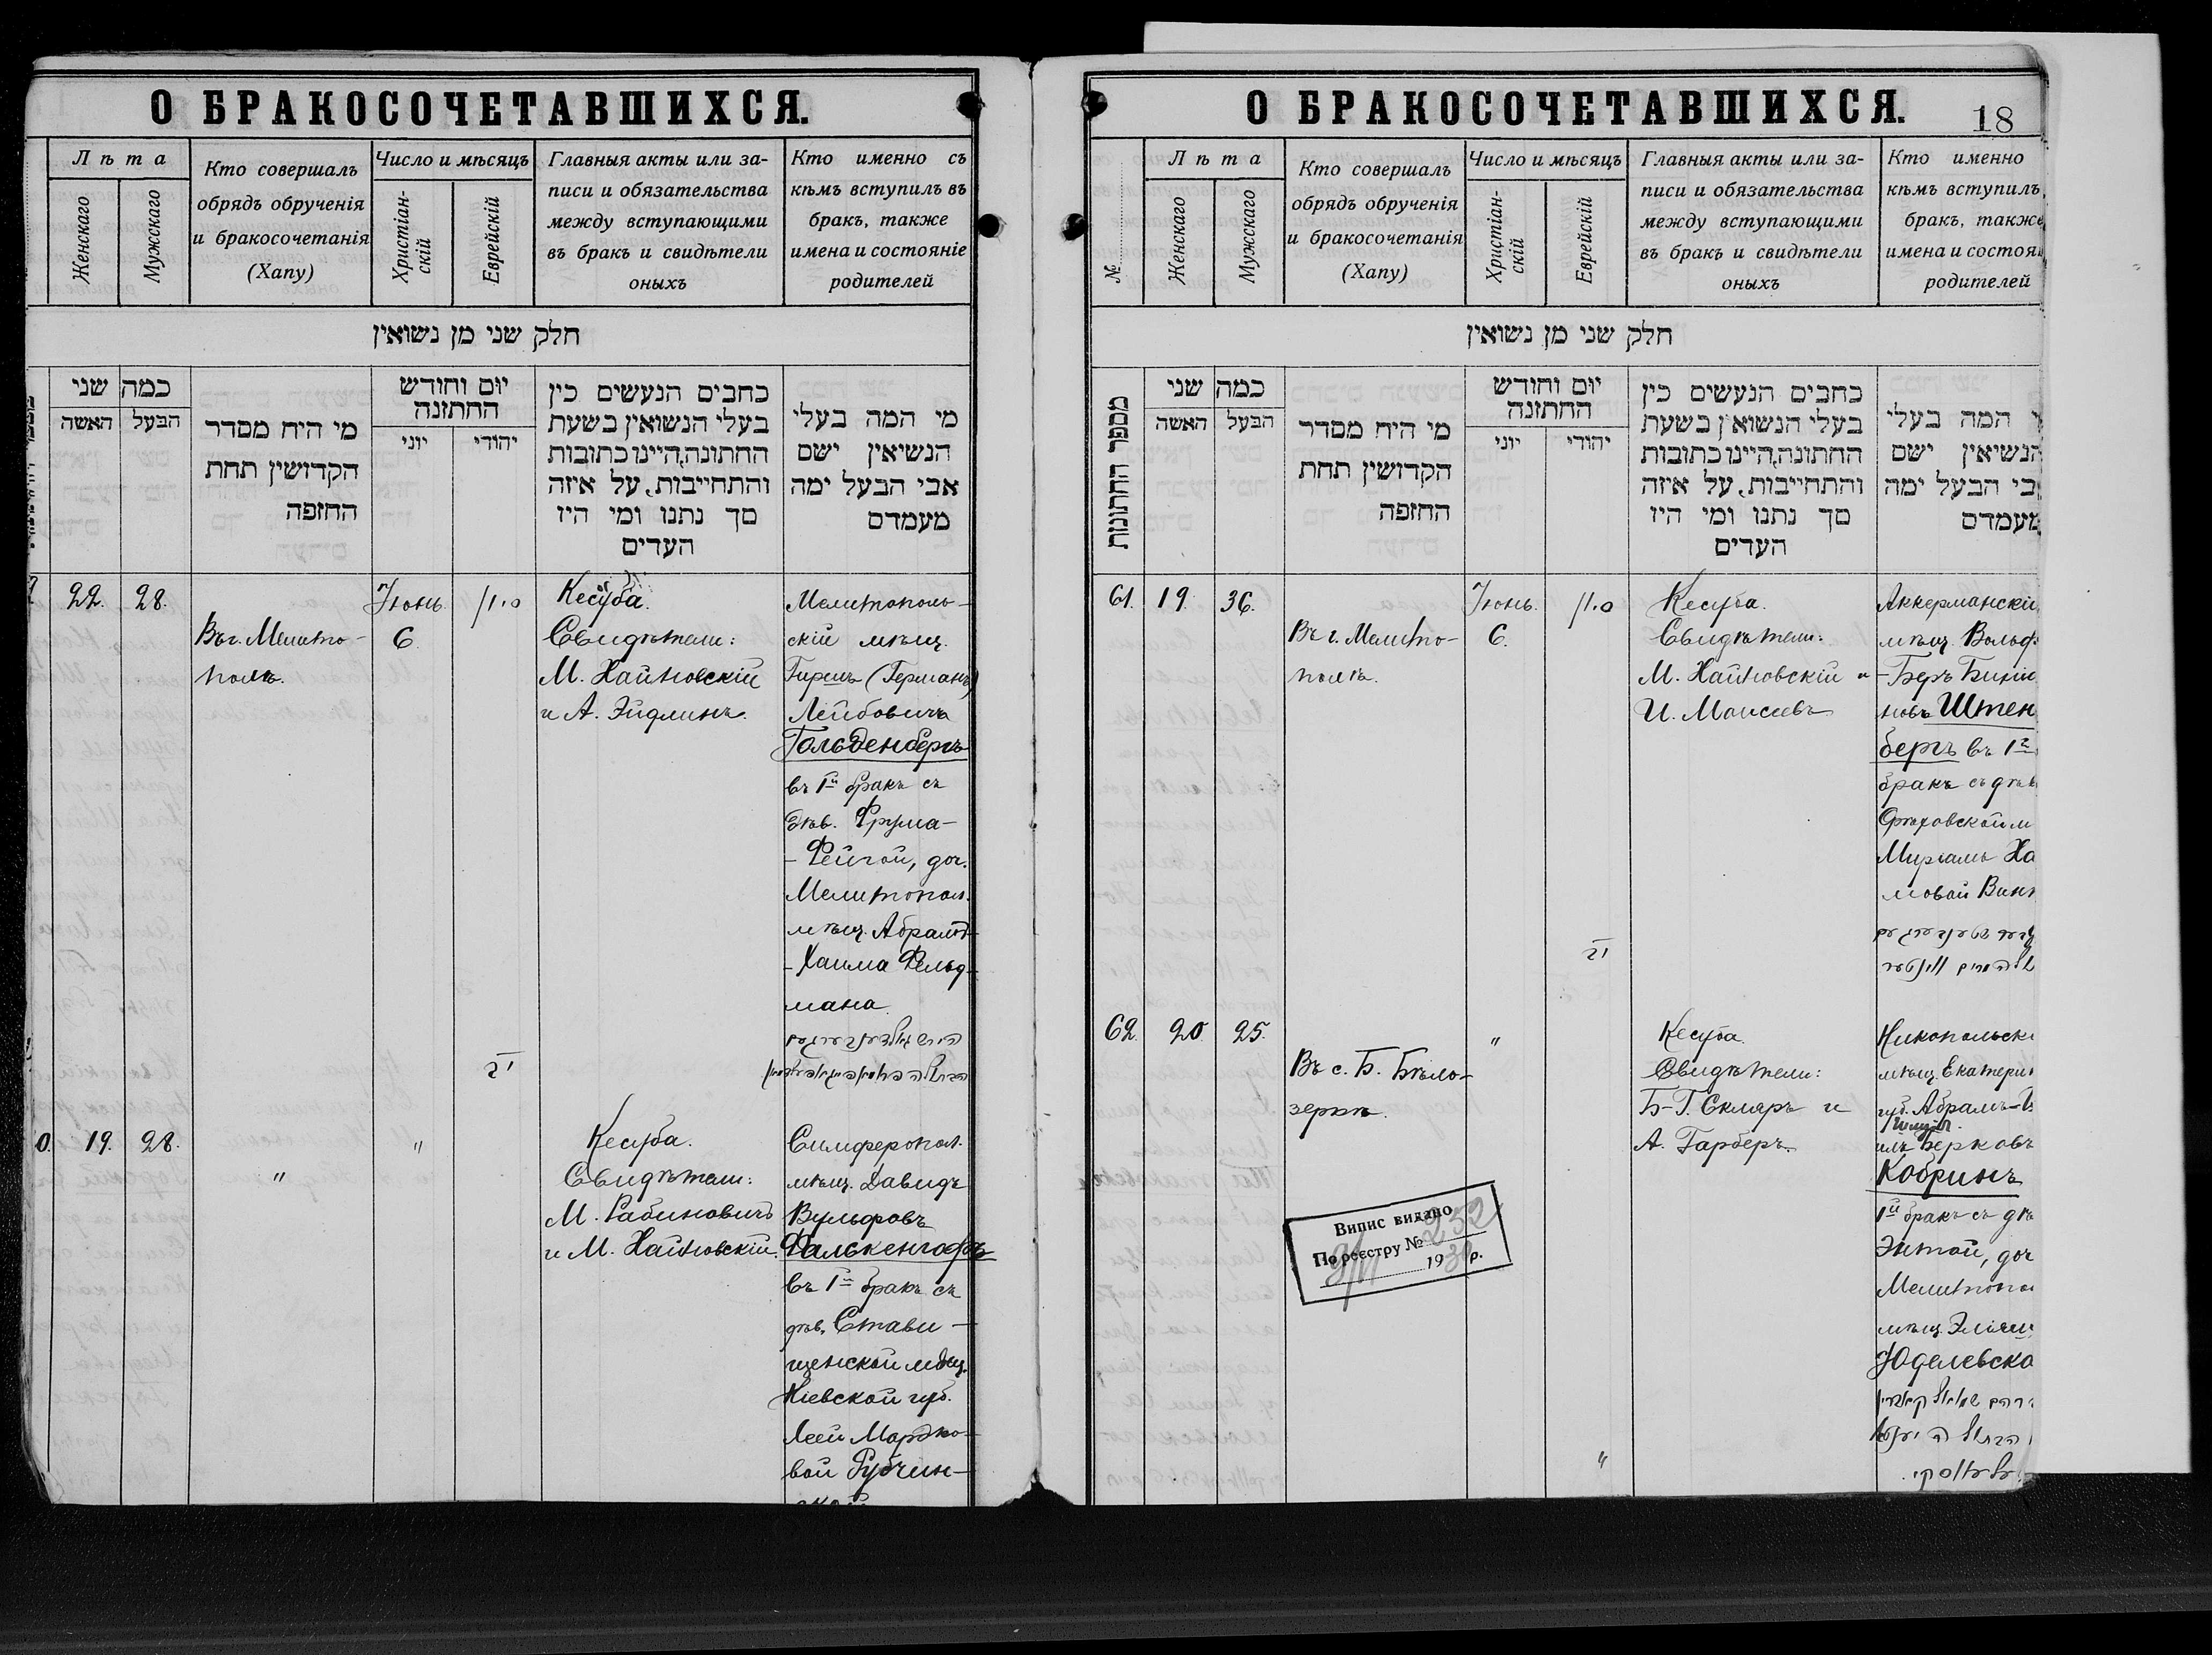 О БРАКОСОЧЕТАВШИХСЯ.
Лѣта
Женскаго
Мужскаго
Кто совершалъ
обрядъ обрученія
и бракосочетанія
(Хапу)
Число и мѣсяцъ
Христіан-
скій
Еврейскій
Главныя акты или за-
писи и обязательства
между вступающими
въ бракъ и свидѣтели
оныхъ
Кто именно съ
кѣмъ вступилъ въ
бракъ, также
имена и состояніе
родителей
חלק שני מן נשואין
כמה שני
האשה
הבעל
מי היח מסדר
הקדושין תחת
החזפה
יום וחודש
החתזנה
יוני
יהודי
כחבים הנעשים כין
בעלי הנשואין בשעת
החתונה,היינו כתובות
והתחייבות, על איזה
סך נתנו ומי היז
העדים
מי המה בעלי
הנשיאין ישם
אבי הבעל ימה
מעמדם
22. 28.
Въ г. Мелито-
полѣ.
Іюнь.
6
סיון
יד
Кесуба.
Свидѣтели:
М. Хайновскій
и А. Эйдлинъ.
Мелитополь-
скій мѣщ.
Гиршъ (Германъ)
Лейбовичъ
Гольденбергъ
въ 1й бракъ съ
дѣв. Фрума-
-Фейгой, доч.
Мелитопол.
мѣщ. Абрамъ-
-Хаима Фельд-
мана
הירש גאלדענבערג עם
0. 19. 28.
"
"
Кесуба.
Свидѣтели:
М. Рабиновичъ
и М. Хайновскій.
Симферопол.
мѣщ. Давидъ
Вульфовъ
Фалькенгофъ
въ 1й бракъ съ
дѣв. Стави-
щенской мѣщ.
Кіевской губ.
Леей Мордко-
вой Рубчин-
ской
О БРАКОСОЧЕТАВШИХСЯ.
18
№
Лѣта
Женскаго
Мужскаго
Кто совершалъ
обрядъ обрученія
и бракосочетанія
(Хапу)
Число и мѣсяцъ
Христіан-
скій
Еврейскій
Главныя акты или за-
писи и обязательства
между вступающими
въ бракъ и свидѣтели
оныхъ
Кто именно
кѣмъ вступилъ
бракъ, также
имена и состоя
родителей
חלק שני מן נשואין
מספר החתונות
כמה שני
האשה
הבעל
מי היח מסדר
הקדושין תחת
החזפה
יום וחודש
החתזנה
יוני
יהודי
כחבים הנעשים כין
בעלי הנשואין בשעת
החתונה,היינו כתובות
והתחייבות, על איזה
סך נתנו ומי היז
העדים
המה בעלי
הנשיאין ישם
בי הבעל ימה
מעמדם
61. 19. 36.
Въ г. Мелито-
полѣ.
Іюнь.
6.
סיון
יד
Кесуба.
Свидѣтели:
М. Хайновскій и
И. Моисеевъ
Аккерманскі
мѣщ. Вольф
-Беръ Бинiо
новъ Штен
бергъ въ 1й
бракъ съ дѣв
Орѣховской м
Миріамъ Ха
мовой Винн
62. 20. 25.
Въ с. Б. Бѣло-
зеркѣ.
"
"
Кесуба.
Свидѣтели:
Б-Г. Скляръ и
А. Гарберъ.
Никопольск
мѣщ. Екатерин
губ. Абрамъ-
илъ Берковъ
Кобринъ
1й бракъ съ дѣ
Энтой, доч
Мелитопо
мѣщ.
Юделевско
Випис видано
По реестру № 252
193 р.